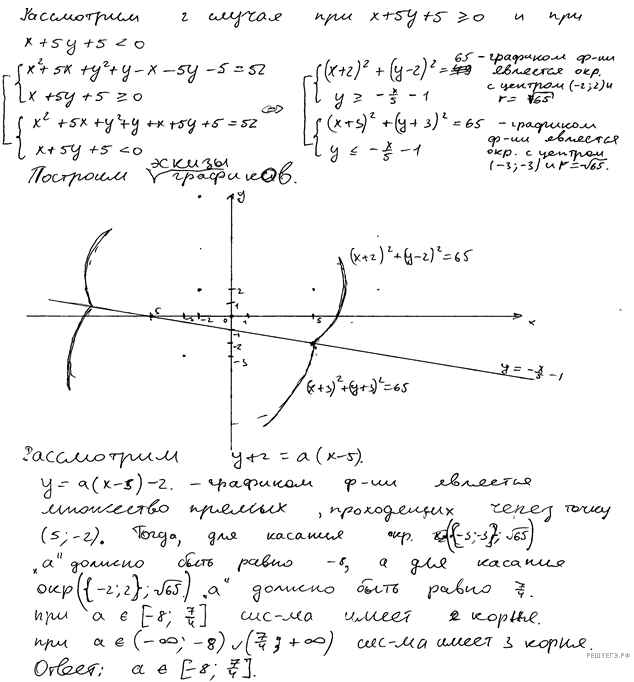 Рассмотрим 2 случая при x+5y+5 ≥ 0 и при
x+5y+5 < 0
x²+5x+y²+y-x-5y-5=52
x+5y+5 ≥ 0
x²+5x+y²+y+x+5y+5=52
x+5y+5<0
⇔
(x+2)²+(y-2)²=65 - графиком ф-ии
является окр.
с центром (-2;2) и
r=√65
y ≥ -x/5 - 1
(x+3)²+(y+3)²=65 - графиком
ф-ии является
окр. с центром
(-3;-3) и r=√65.
y ≤ -x/5 - 1
Построим эскизы графиков.
y
(x+2)²+(y-2)²=65
2
1
5 -3 -2 0 1 5 x
-1
-2
-3
y = -x/5 - 1
(x+3)²+(y+3)²=65
Рассмотрим y+2=a(x-5).
y=a(x-5)-2. - графиком ф-ии является
множество прямых, проходящих через точку
(5;-2). Тогда, для касания окр. ({-3;-3};√65)
"a" должно быть равно -8, а для касания
окр({-2;2};√65) "a" должно быть равно 7/4.
при a ∈ [-8; 7/4] сис-ма имеет 2 корня.
при a ∈ (-∞; -8) ∪ (7/4; +∞) сис-ма имеет 3 корня.
Ответ: a ∈ [-8; 7/4].
РЕШУЕГЭ.РФ